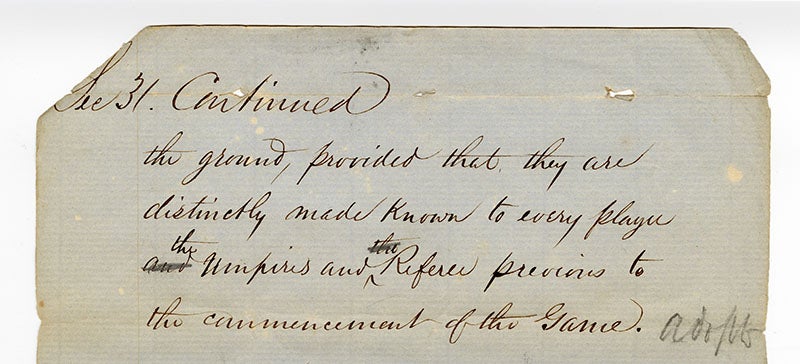 Sec 31. Continued
the ground, provided that they are
distinctly made known to every player
the
the
and Umpires and Referee previous to
the commencement of the Game.
adopt